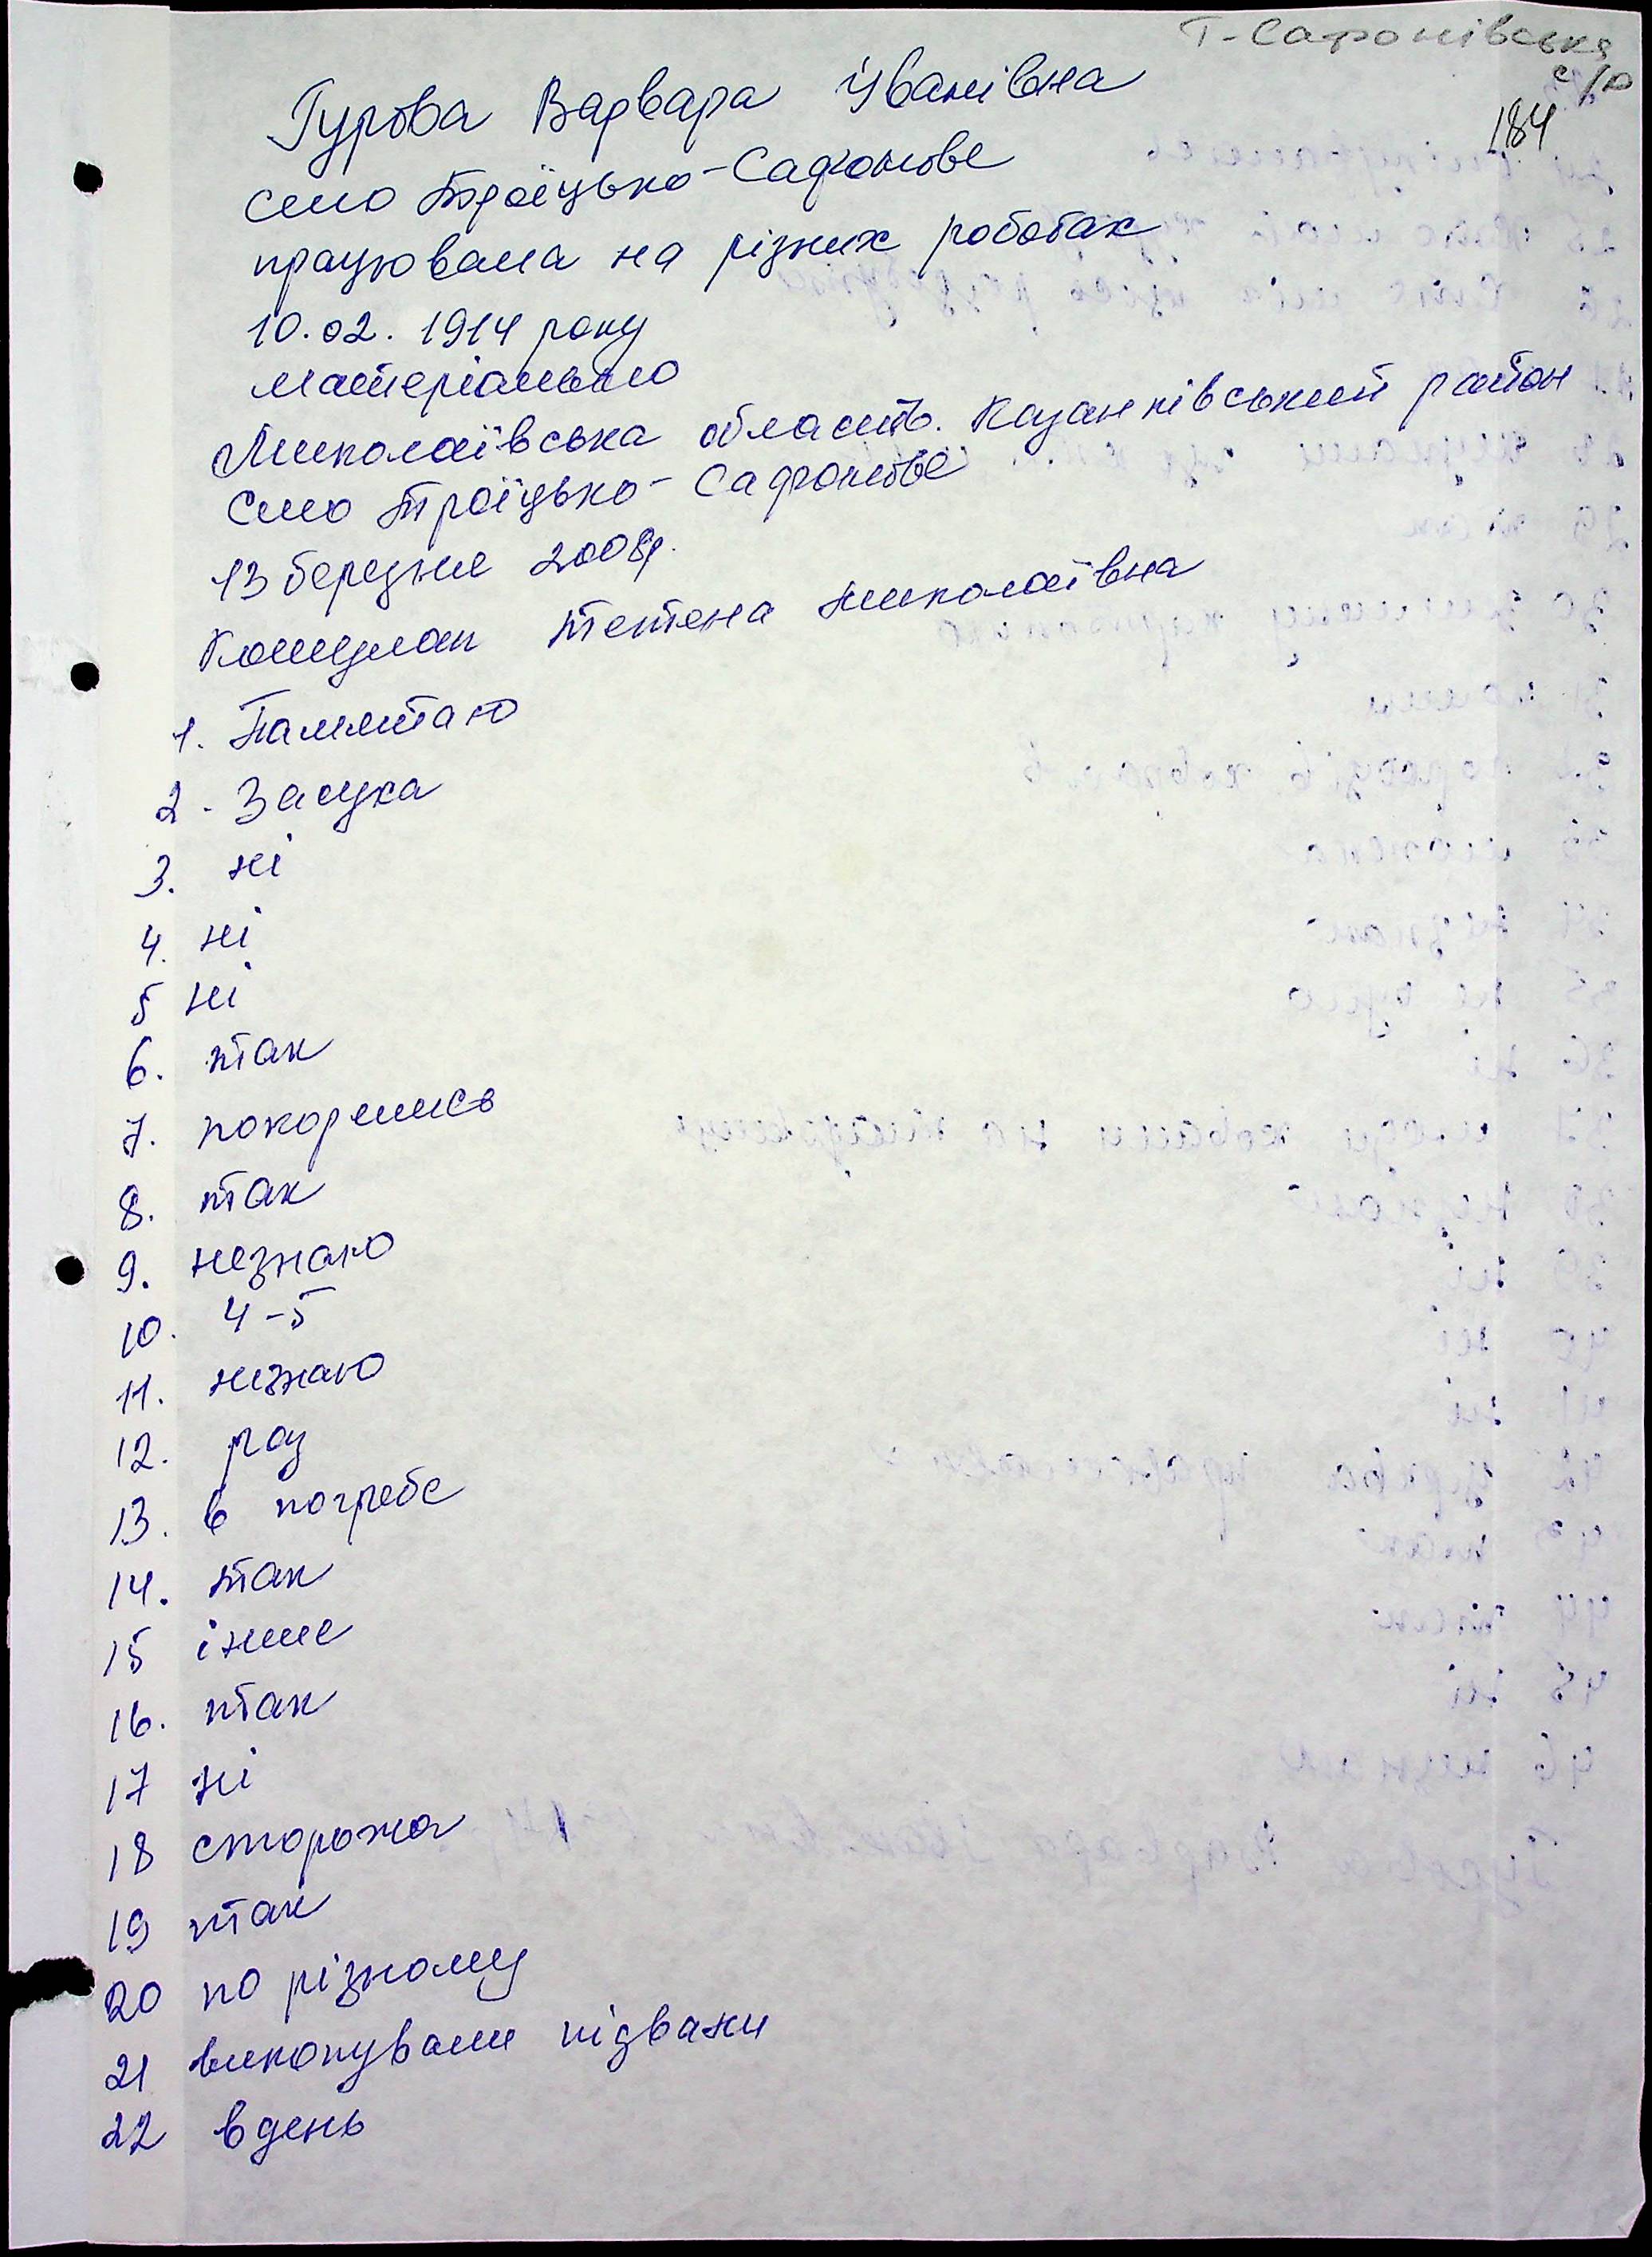 Т-Сафонівська
с/р
184
Гурова Варвара Іванівна
село Троїцько-Сафонове
працювала на різних роботах
10.02.1914 року
материально
Миколаївська область. Казанківський район
Село Троїцько-Сафонове
13 березня 2008р.
Тетяна Миколаївна
1. Памятаю
2. Засуха
3. ні
4. ні
5 ні
6. так
7. покорились
8. так
9. незнаю
10. 4-5
11. незнаю
12. раз
13. в погребе
14. так
15 інше
16. так
17 ні
18 сторожа
19 так
20 по різному
21 викопували підвали
22 вдень